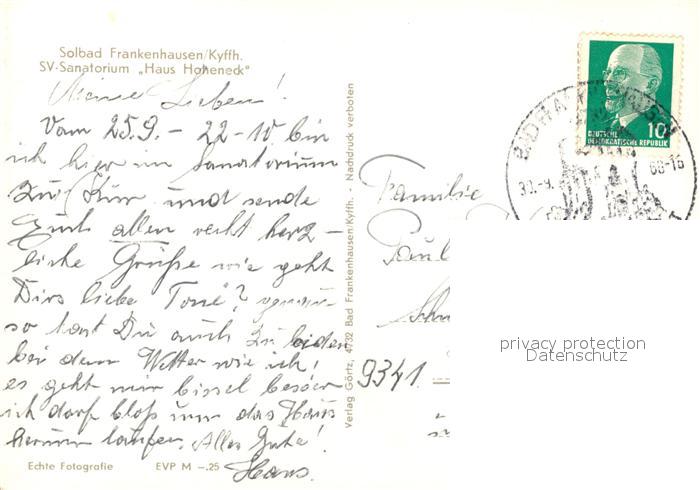 Solbad Frankenhausen/Kyffh.
SV-Sanatorium „Haus Hoheneck"
Meine Lieben!
Vom 25.9. - 22-10 bin
ich hier im Sanatorium
zur Kur und sende
Euch allen recht herz-
liche Grüße wie geht
Dirs liebe Toni? genau-
so hast Du auch zu leiden
bei dem Wetter wie ich!
es geht mir bissel besser
ich darf bloß nur das Haus
herum laufen. Alles Gute!
Hans.
Echte Fotografie EVP M -.25
Verlag Görtz, 4732 Bad Frankenhausen/Kyffh. · Nachdruck verboten
DEUTSCHE
DEMOKRATISCHE REPUBLIK
10
30.-9.
68-16
Familie
Paul
9341
privacy protection
Datenschutz